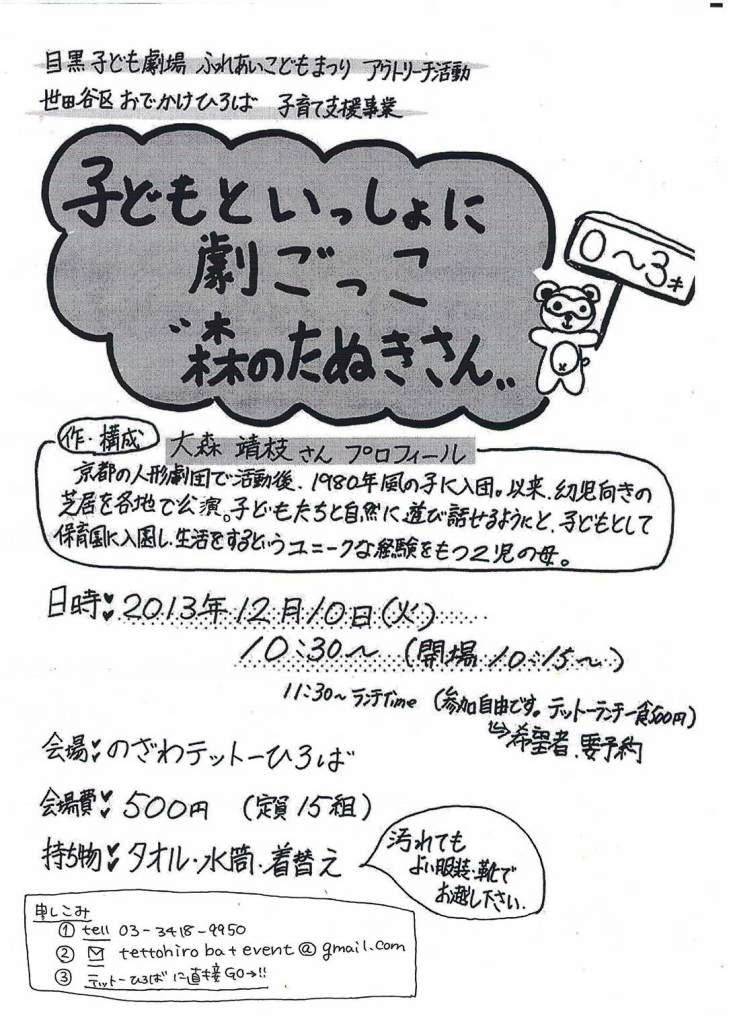 目黒子ども劇場 ふれあいこどもまつり アウトリーチ活動
世田谷区おでかけひろば 子育て支援事業
子どもといっしょに
劇ごっこ
"森のたぬきさん"
0〜3才
作・構成
大森 靖枝さん プロフィール
京都の人形劇団で活動後、1980年風の子に入団。以来、幼児向きの
芝居を各地で公演。子どもたちと自然に遊び話せるようにと、子どもとして
保育園に入園し、生活をするというユニークな経験をもつ2児の母。
日時 2013年12月10日(火)
10:30〜 (開場10:15〜)
11:30〜ランチTime (参加自由です。テットーランチ一食500円)
⇨希望者、要予約
会場 のざわテットーひろば
会場費 500円 (定員15組)
持ち物 タオル・水筒・着替え
汚れても
よい服装・靴で
お越し下さい。
申しこみ
① tell 03-3418-9950
② tettohiroba+event@gmail.com
③ テットーひろばに直接GO→!!